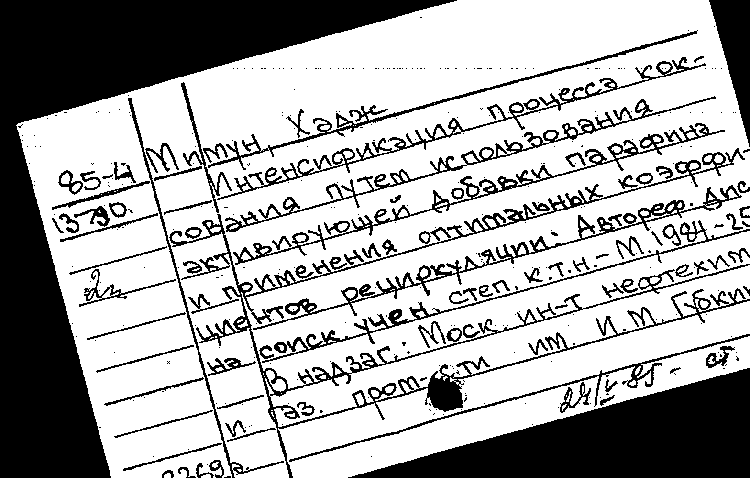 85-4
13790
2н
Мимун, Хадж
Интенсификация процесса кок-
сования путем использования
активирующей добавки парафина
и применения оптимальных коэффи-
циентов рециркуляции: Автореф. Дис
на соиск. учен. степ. к.т.н.- М., 1984.-25
В надзаг.: Моск. ин-т нефтехим
и газ. пром-сти им. И.М. Губкин
24/V-85-